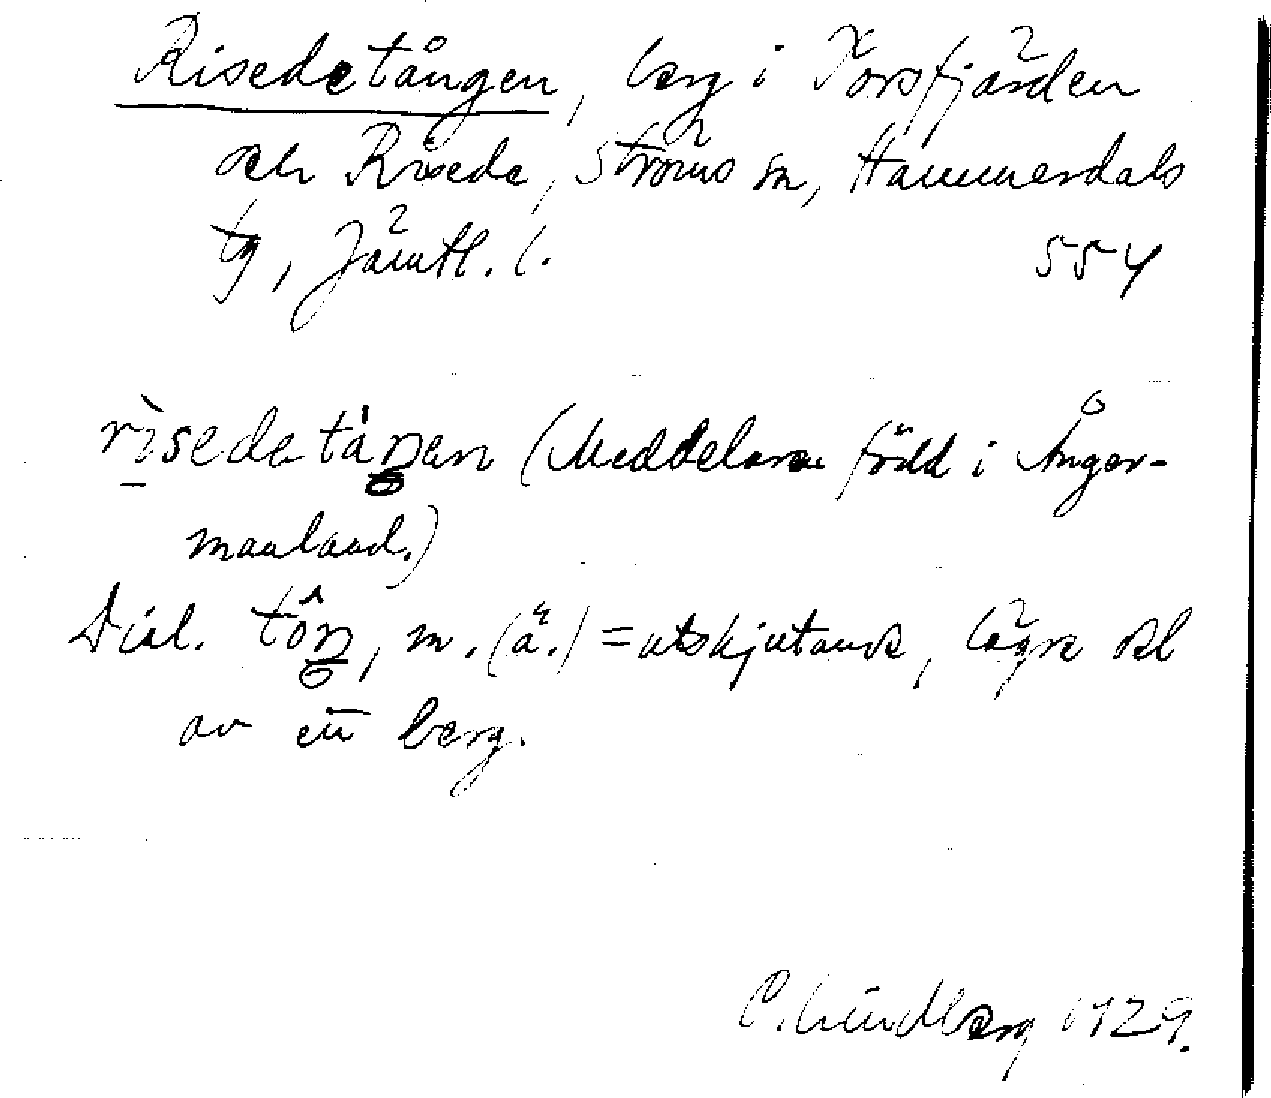 Risedetången, berg i Torsfjärden
och Risede, Ströms sn, Hammerdals
tg, Jämtl. l. 554
risedetåŋen (Meddelaren född i Ånger-
manland.)
Dial. tôŋ, m. (ä.) = utskjutande, lägre del
av ett berg.
C. Lindberg 1929.